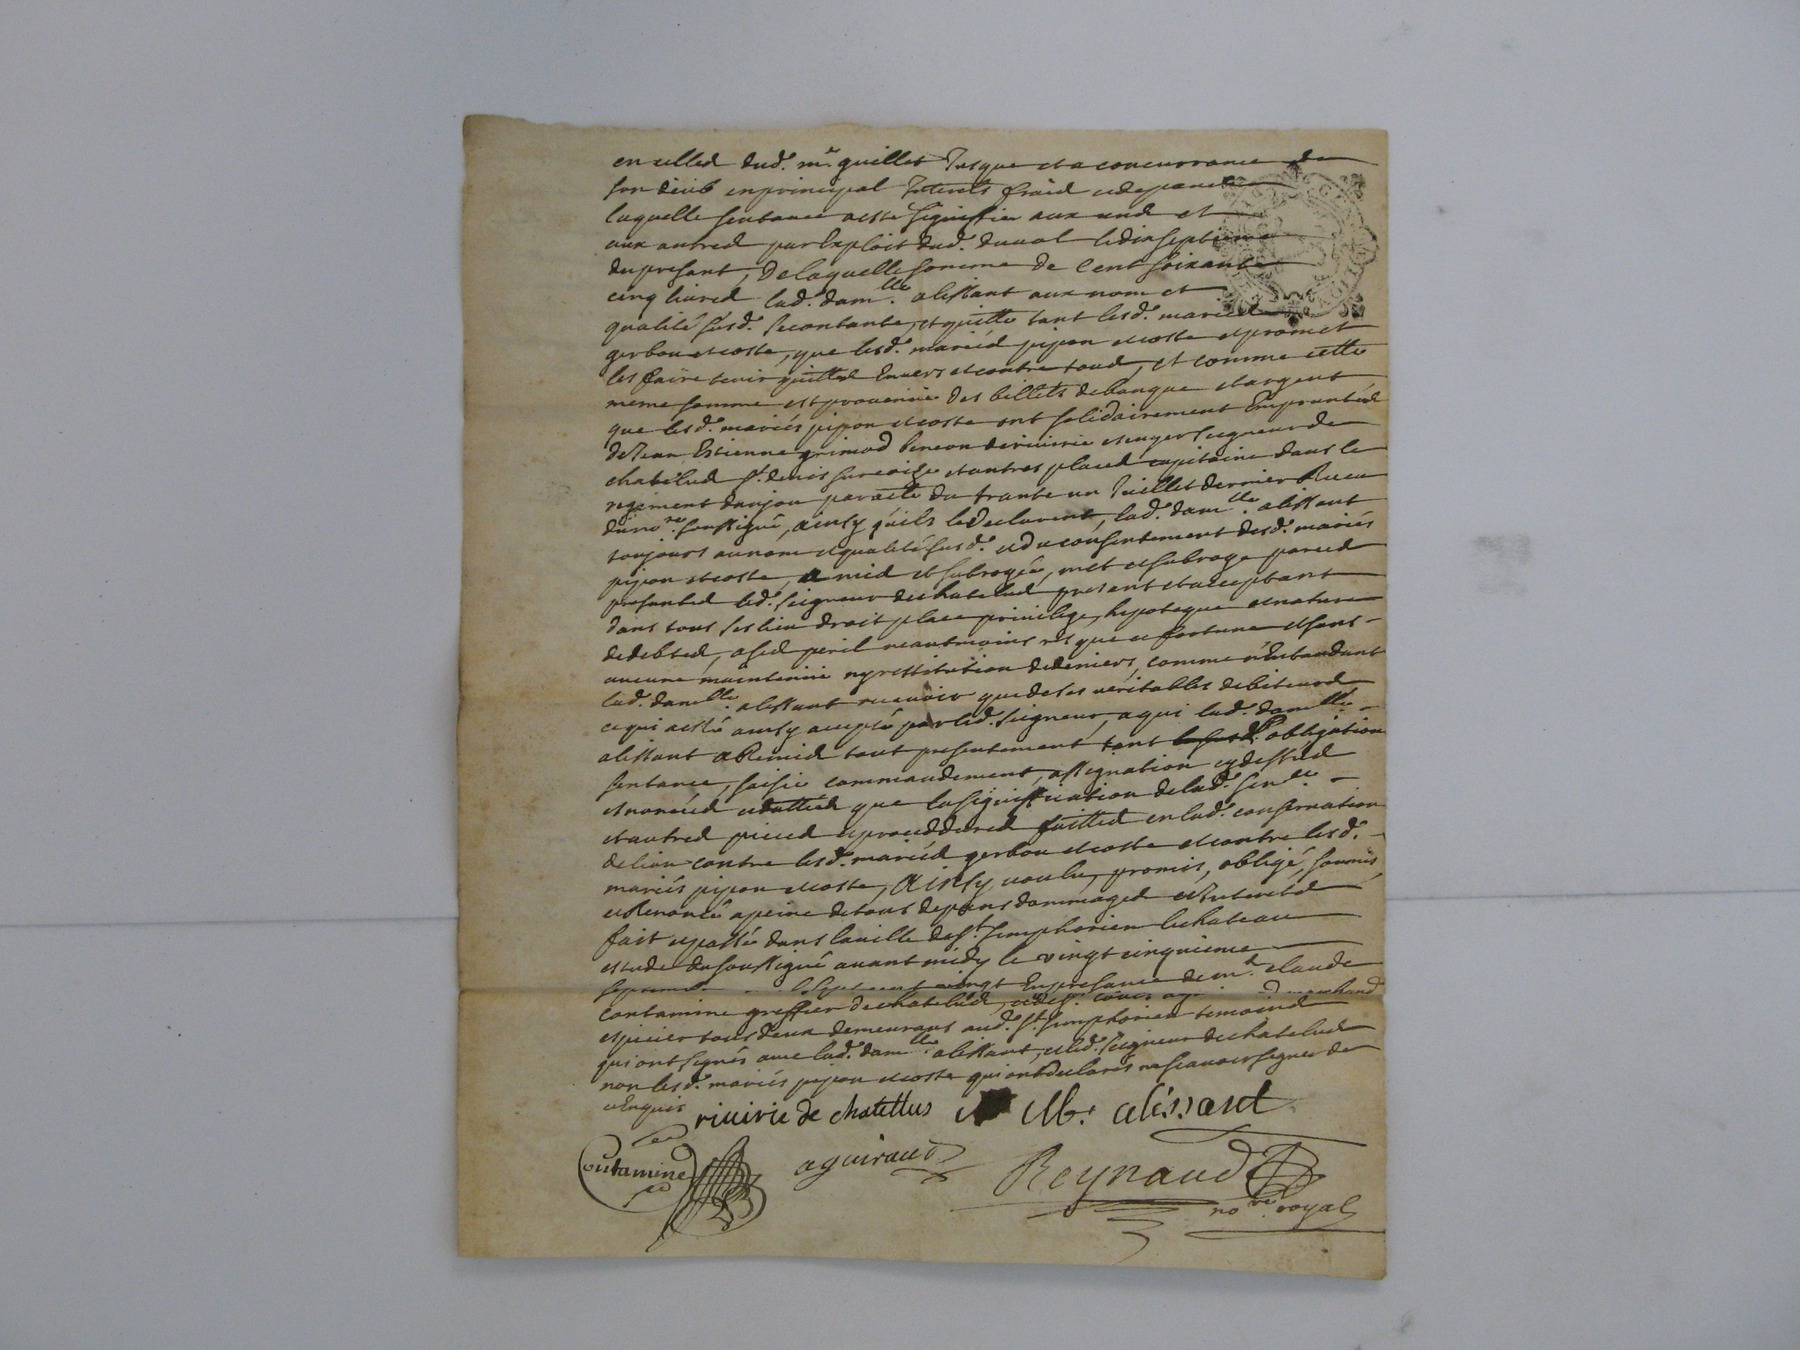 en celles dud. mr. guillet Jusque et a concurrance de
son deub en principal Interests fraid et depans
laquelle sentance a esté signiffiée aux uns et
aux autres par Exploit dud. duval le dix septieme
du present, De laquelle somme de Cent soixante
cinq livres lad. damlle. alissant aux nom et
qualité susd. se contante, et quitte tant lesd. mariéd
gerbou et coste, que lesd. mariéd pipon et coste et promet
les faire tenir quitted Envers et contre tous, et comme cette
meme somme est provenüe des billets de banque et argent
que lesd. mariés pipon et coste ont solidairement Empruntéd
de Jean Estienne grimod Beneon de riuirie escuyer seigneur de
chatelud st. denis sur coize et autres placed capitaine dans le
regiment danjou par acte du trante un Juillet dernier Receu
du nore. soussigné, ainsy quils le declarent, lad. damlle. alissant
toujours au nom et qualité susd. et du consentement desd. mariés
pipon et coste, a mid et subrogée, met et subroge par ced
presented led. seigneur de chatelud present et acceptant
dans tous ses lieu droit place privilege, hypoteque et nature
de debted, a sed peril neantmoins risque et fortune et sans
aucune maintenüe ny restitution de deniers, comme n'Entandant
lad. damlle. alissant recevoir que de ses véritables debiteurd
ce qui a esté ainsy accepté par led. seigneur, a qui lad. damlle.
alissant a Remid tout presentement tant obligation
sentance, saisie commandement, assignation cy dessud
enoncéd et dattéd que la signiffication de lad. sence.
et autred pieced et proceddured faitted en lad. conservation
de lion contre lesd. mariéd gerbou et coste et contre lesd.
mariés pipon et coste, Ainsy voulu, promis, obligé, soumis,
et Renoncé a peine de tous depans dommaged et Interested
fait et passé dans la ville de st. simphorien le chateau
estude du soussigné avant midy le vingt cinquieme
vingt En presance de mr. claude
Contamine greffier de chatelud,
epicier tous deux demeurans aud. st. simphorien temoind
qui ont signés avec lad. damlle. alissant, et led. seigneur de chatelud
non lesd. mariés pipon et coste qui ont declarés ne sçavoir signer de
ce Enquis riuirie de chatellus M. alissant
Contamine aguiraud Reynaud
nore. royal